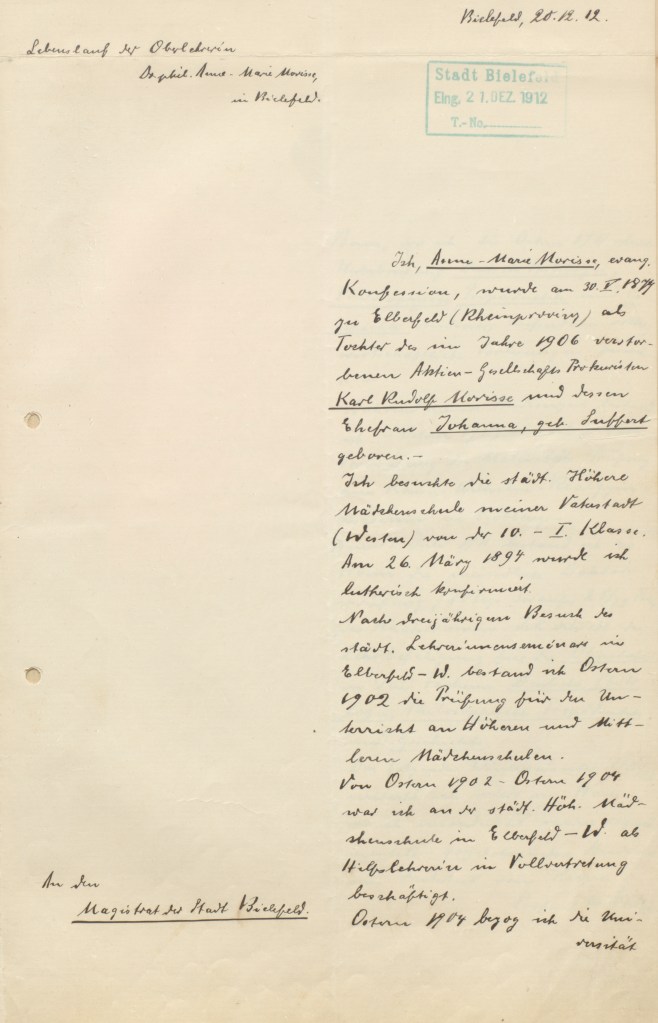 Bielefeld, 20.12.12.
Lebenslauf der Oberlehrerin
Dr. phil. Anne-Marie Morisse,
in Bielefeld.
Stadt Bielefeld
Eing. 21. DEZ. 1912
T.-No.
Ich, Anne-Marie Morisse, evang.
Konfession, wurde am 30. V. 1879
zu Elberfeld (Rheinprovinz) als
Tochter des im Jahre 1906 verstor-
benen Aktien-Gesellschafts Prokuristen
Karl Rudolf Morisse und dessen
Ehefrau Johanna, geb. Luffert
geboren.-
Ich besuchte die städt. Höhere
Mädchenschule meiner Vaterstadt
(Westen) von der 10. - I. Klasse.
Am 26. März 1894 wurde ich
lutherisch konfirmiert.
Nach dreijährigem Besuch des
städt. Lehrerinnenseminars in
Elberfeld-W. bestand ich Ostern
1902 die Prüfung für den Un-
terricht an Höheren und Mitt-
leren Mädchenschulen.
Von Ostern 1902 - Ostern 1904
war ich an der städt. Höh. Mäd-
chenschule in Elberfeld-W. als
Hilfslehrerin in Vollvertretung
beschäftigt.
Ostern 1904 bezog ich die Uni-
versität
An den
Magistrat der Stadt Bielefeld.